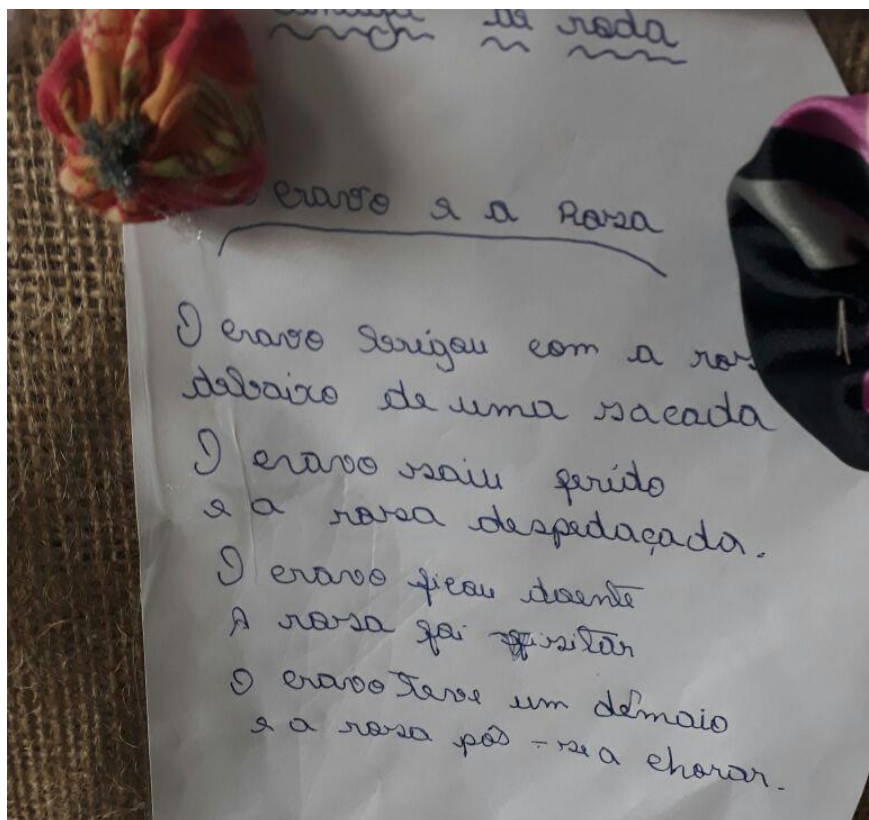 de roda
cravo e a Rosa
O cravo brigou com a
debaixo de uma sacada
O cravo saiu ferido
e a rosa despedaçada.
O cravo ficou doente
A rosa foi visitar
O cravo teve um demaio
e a rosa pôs-se a chorar.